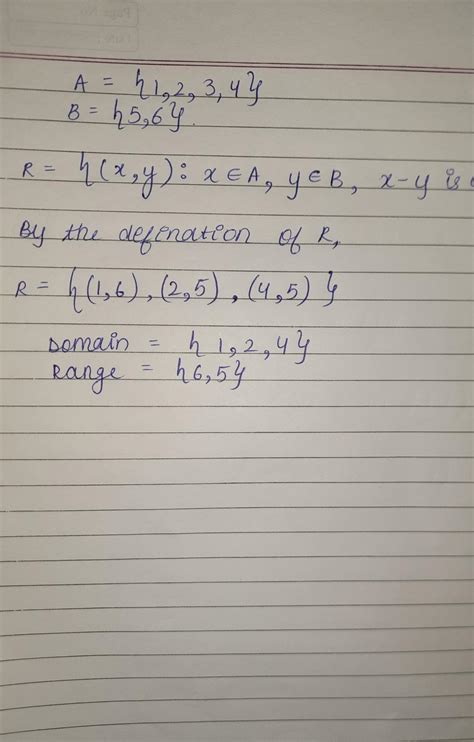 A = {1, 2, 3, 4}
B = {5, 6}.
R = {(x, y) : x ∈ A, y ∈ B, x - y is
By the defenation of R,
R = {(1, 6), (2, 5), (4, 5)}
Domain = {1, 2, 4}
Range = {6, 5}